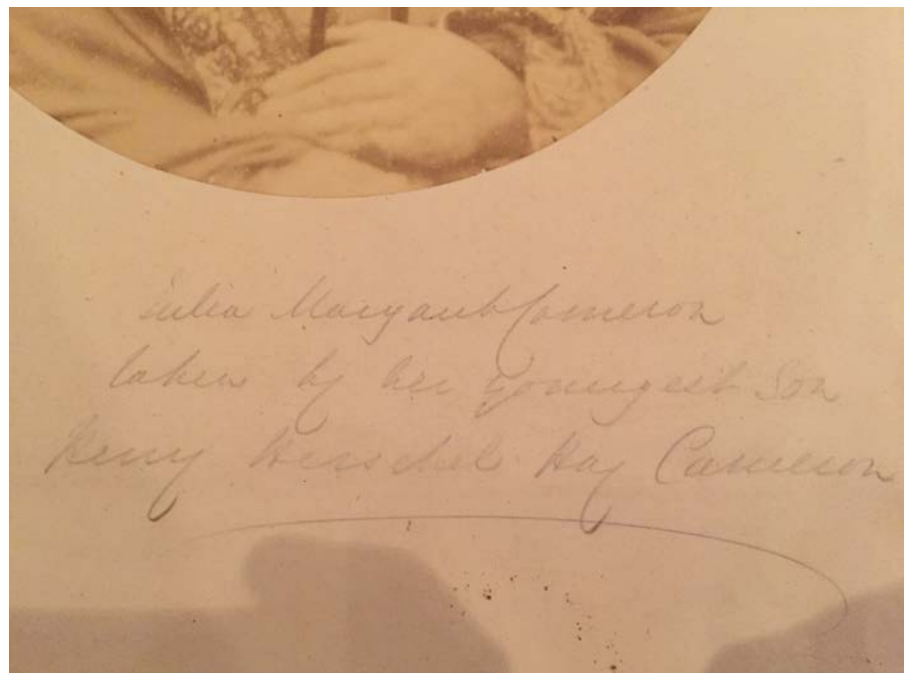 Julia Margaret Cameron
taken by her youngest Son
Henry Herschel Hay Cameron